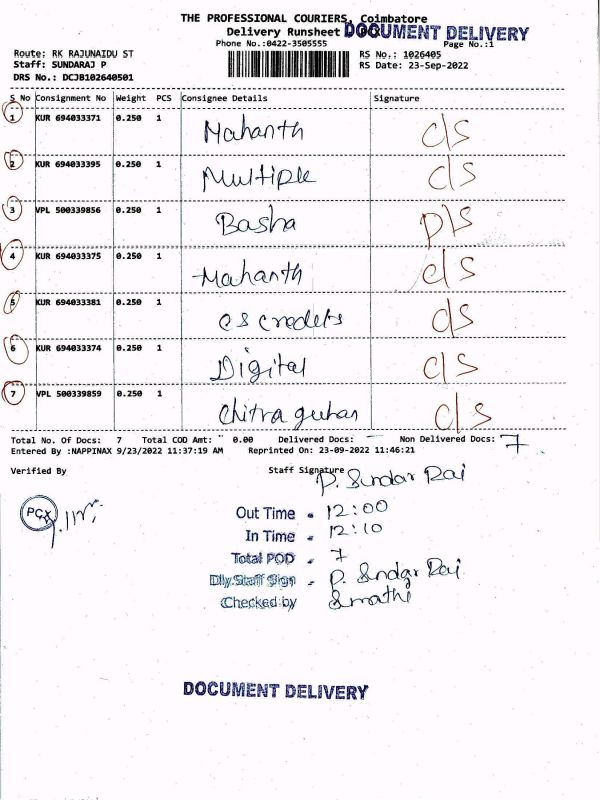 THE PROFESSIONAL COURIERS, Coimbatore
Delivery Runsheet DOCUMENT DELIVERY
Phone No.:0422-3505555 Page No.:1
Route: RK RAJUNAIDU ST RS No.: 1026405
Staff: SUNDARAJ P RS Date: 23-Sep-2022
DRS No.: DCJB102640501
S No Consignment No Weight PCS Consignee Details Signature
1 KUR 694033371 0.250 1 Mahanth C/S
2 KUR 694033395 0.250 1 Multiple C/S
3 VPL 500339856 0.250 1 Basha D/S
4 KUR 694033375 0.250 1 Mahanth C/S
5 KUR 694033381 0.250 1 CS credets C/S
6 KUR 694033374 0.250 1 Digital C/S
7 VPL 500339859 0.250 1 Chitra guhan C/S
Total No. Of Docs: 7 Total COD Amt: 0.00 Delivered Docs: — Non Delivered Docs: 7
Entered By :NAPPINAX 9/23/2022 11:37:19 AM Reprinted On: 23-09-2022 11:46:21
Verified By Staff Signature P. Sundar Raj
PCX
Out Time - 12:00
In Time - 12:10
Total POD - 7
Dly.Staff Sign - P. Sundar Raj
Checked by Smathi
DOCUMENT DELIVERY